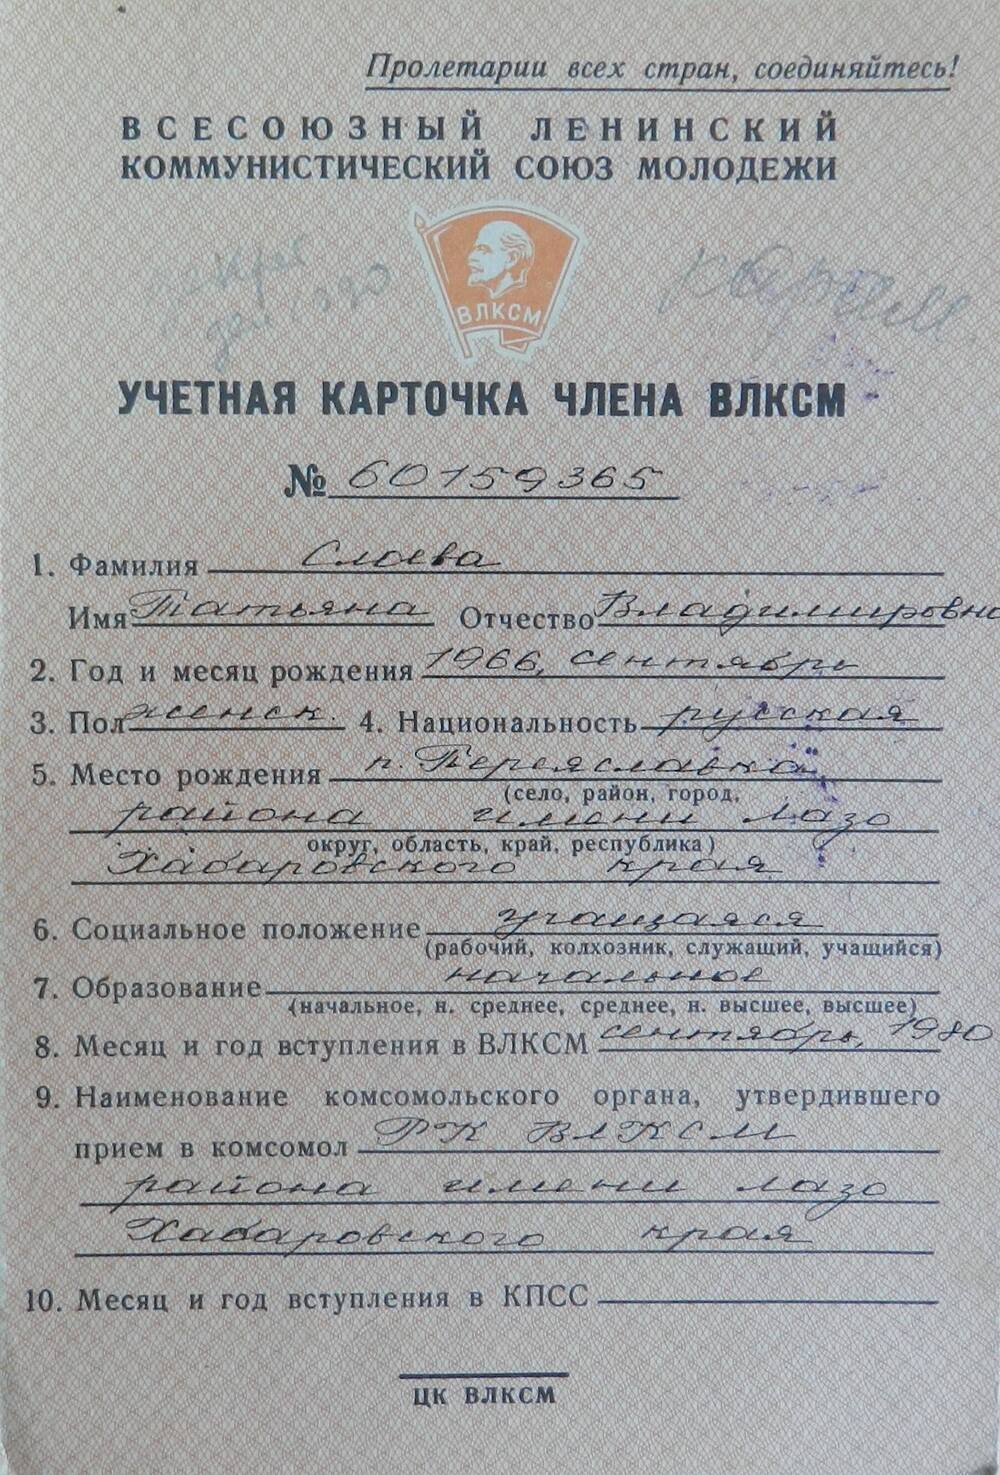 Пролетарии всех стран, соединяйтесь!
ВСЕСОЮЗНЫЙ ЛЕНИНСКИЙ
КОММУНИСТИЧЕСКИЙ СОЮЗ МОЛОДЕЖИ
ВЛКСМ
УЧЕТНАЯ КАРТОЧКА ЧЛЕНА ВЛКСМ
№ 60159365
1. Фамилия Слоева
Имя Татьяна Отчество Владимировна
2. Год и месяц рождения 1966, сентябрь
3. Пол женск. 4. Национальность русская
5. Место рождения п. Переяславка
(село, район, город,
района имени Лазо
округ, область, край, республика)
Хабаровского края
6. Социальное положение учащаяся
(рабочий, колхозник, служащий, учащийся)
7. Образование начальное
(начальное, н. среднее, среднее, н. высшее, высшее)
8. Месяц и год вступления в ВЛКСМ сентябрь, 1980
9. Наименование комсомольского органа, утвердившего
прием в комсомол РК ВЛКСМ
района имени Лазо
Хабаровского края
10. Месяц и год вступления в КПСС
ЦК ВЛКСМ